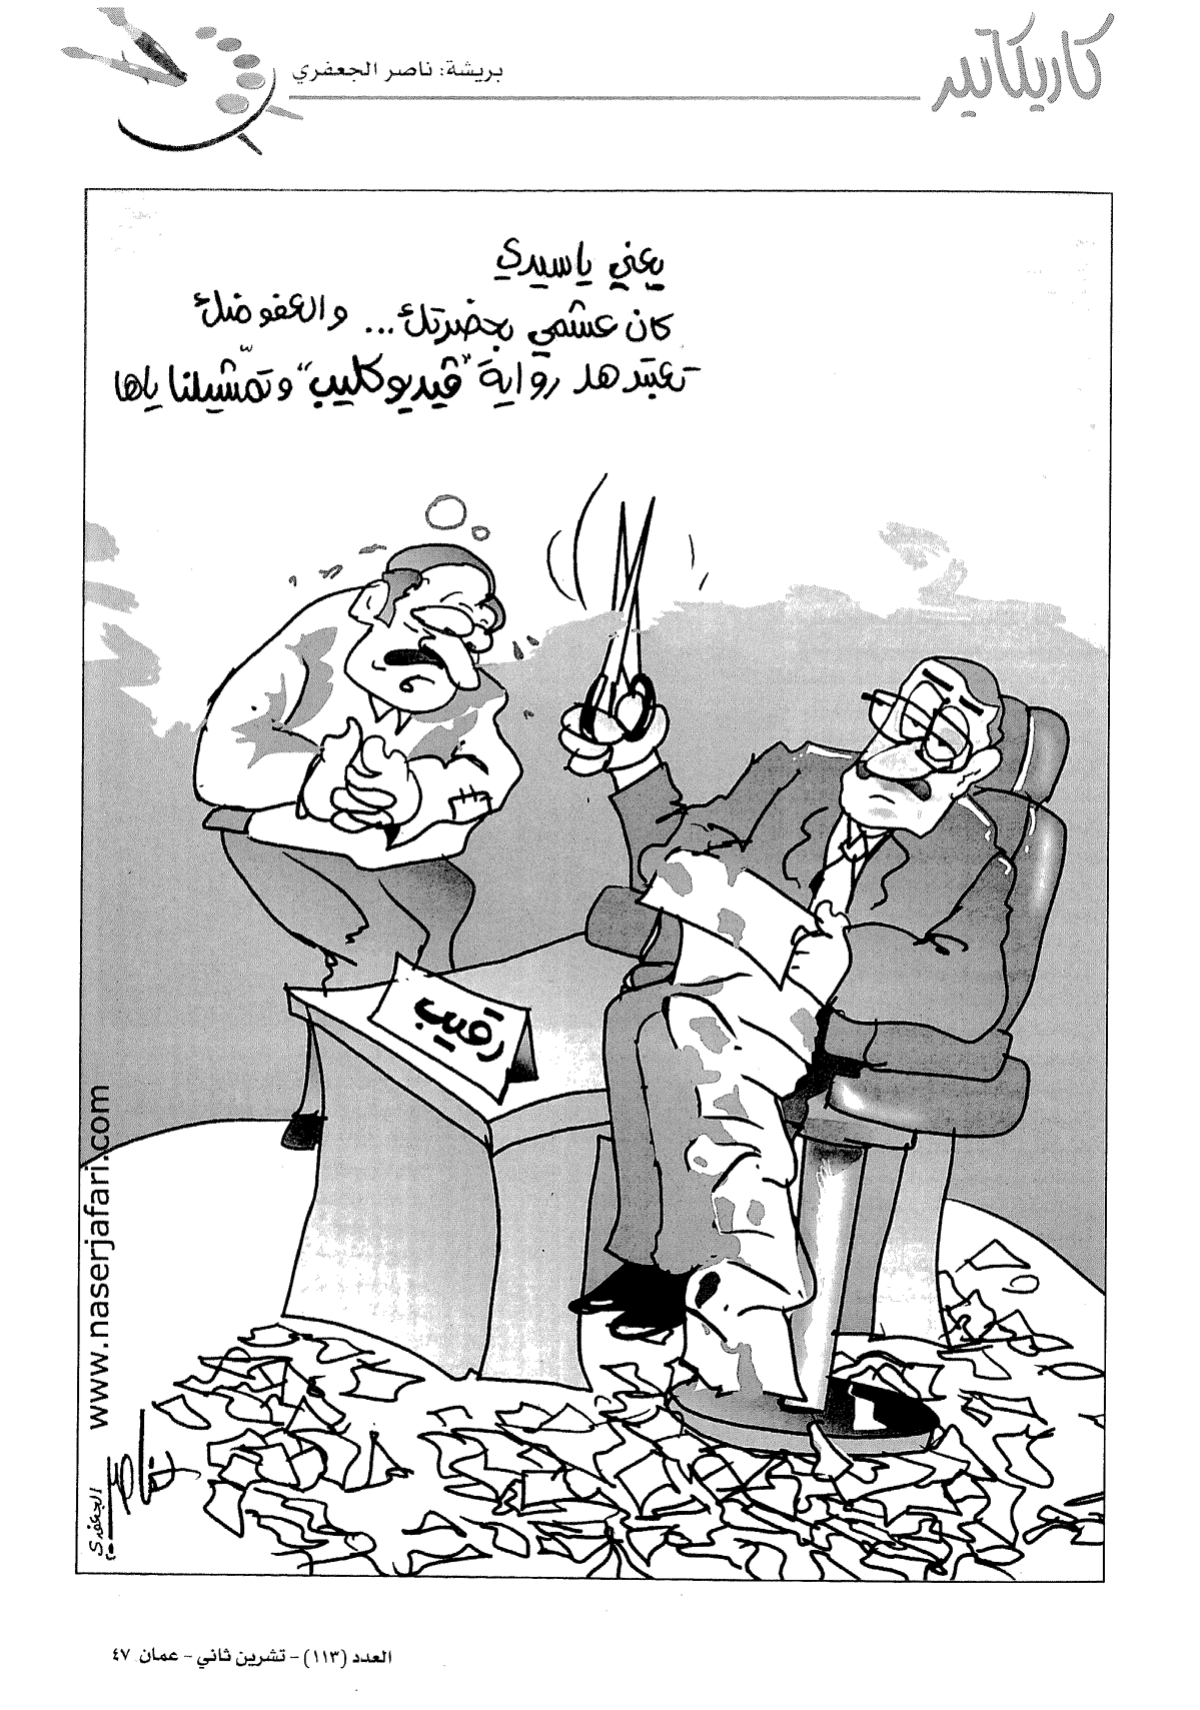 كاريكاتير
بريشة: ناصر الجعفري
يعني يا سيدي
كان عشمي بحضرتك... والعفو منك
تعتبر هلـ رواية "ڤيديو كليب" وتمشّيلنا ياها
رقيب
www.naserjafari.com
ناصر
الجعفري
العدد (١١٣) - تشرين ثاني - عمان ٤٧